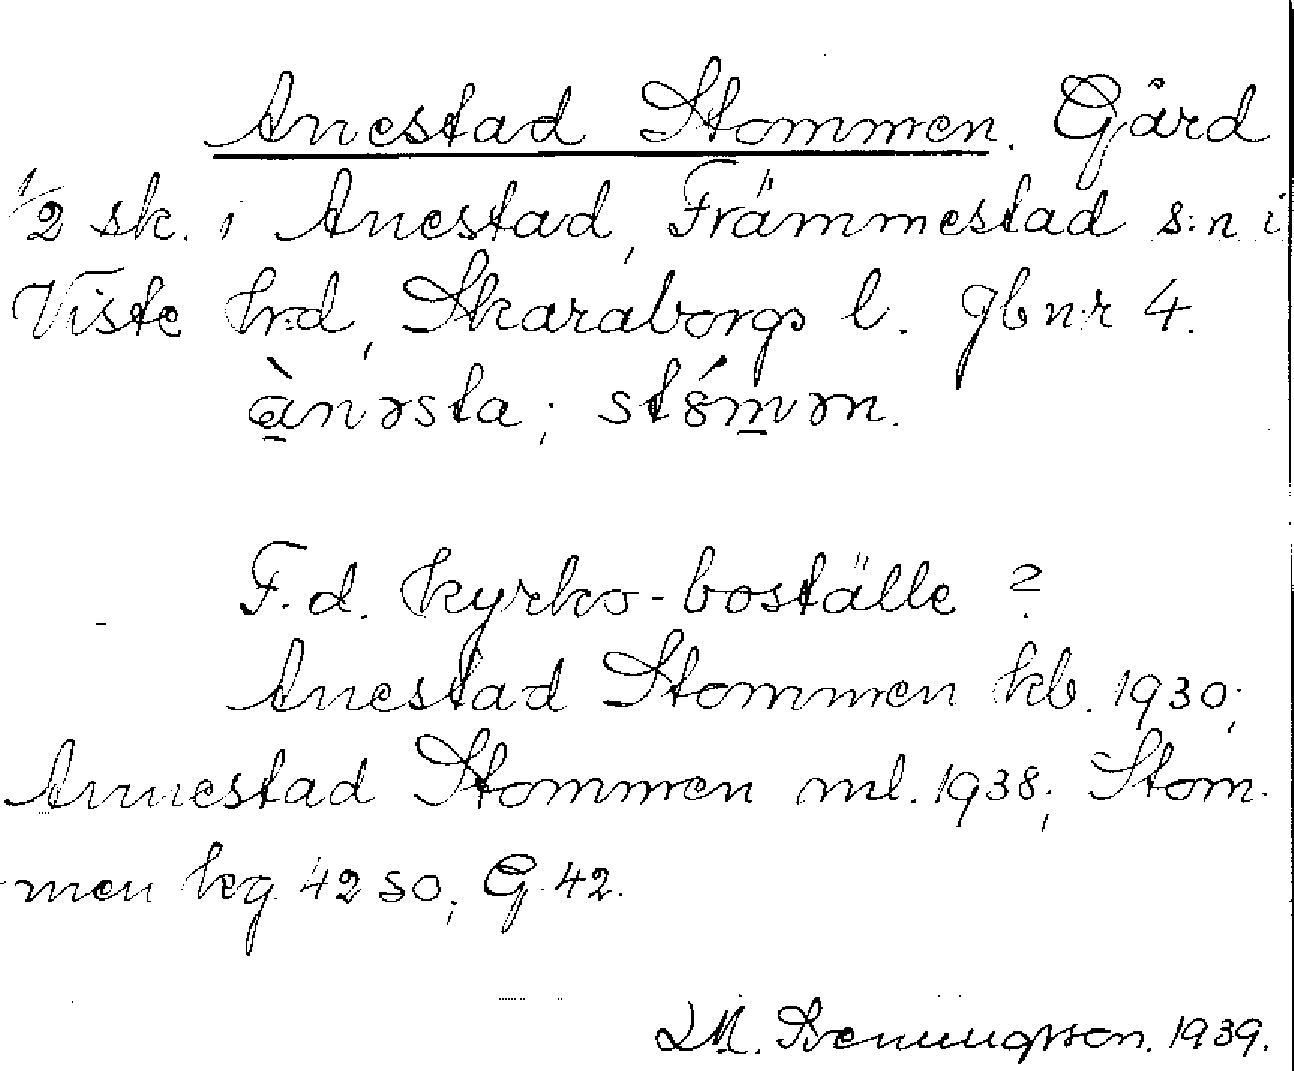 Anestad Stommen. Gård
1/2 sk. i Anestad, Främmestad s:n i
Viste hrd, Skaraborgs l. Jb nr 4.
à̱nəsta; stȣ́m̱ən.
F.d. kyrko-boställe ?
Anestad Stommen kb. 1930;
Annestad Stommen ml. 1938; Stom-
men kg 42 SO; G 42.
1939.